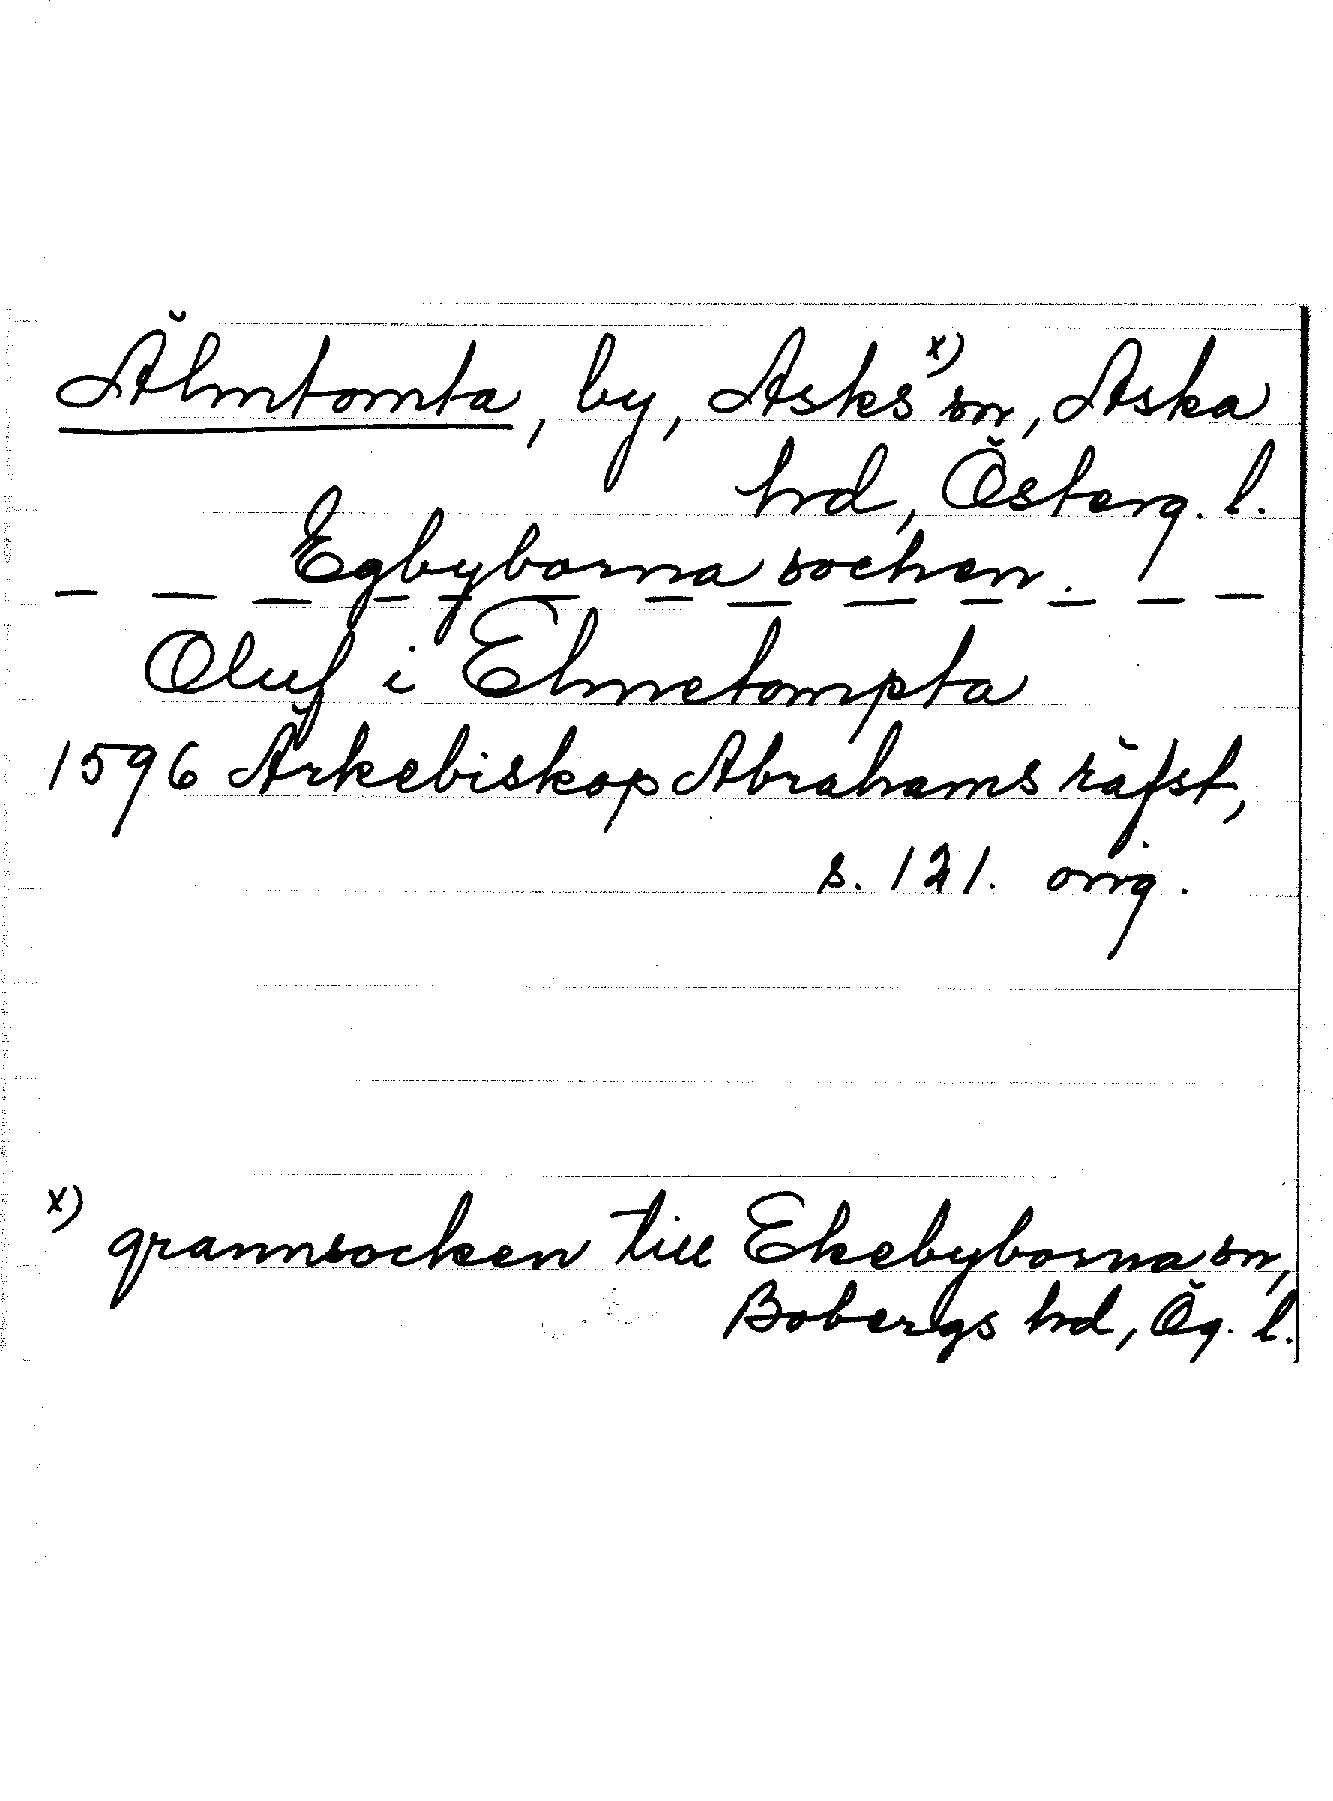 Älmtomta, by, Asks x) sn, Aska
hrd, Österg. l.
Egbyborna sochen.
Oluf i Elmetompta
1596 Ärkebiskop Abrahams räfst,
s. 121. orig.
x) grannsocken till Ekebyborna sn,
Bobergs hrd, Ög. l.